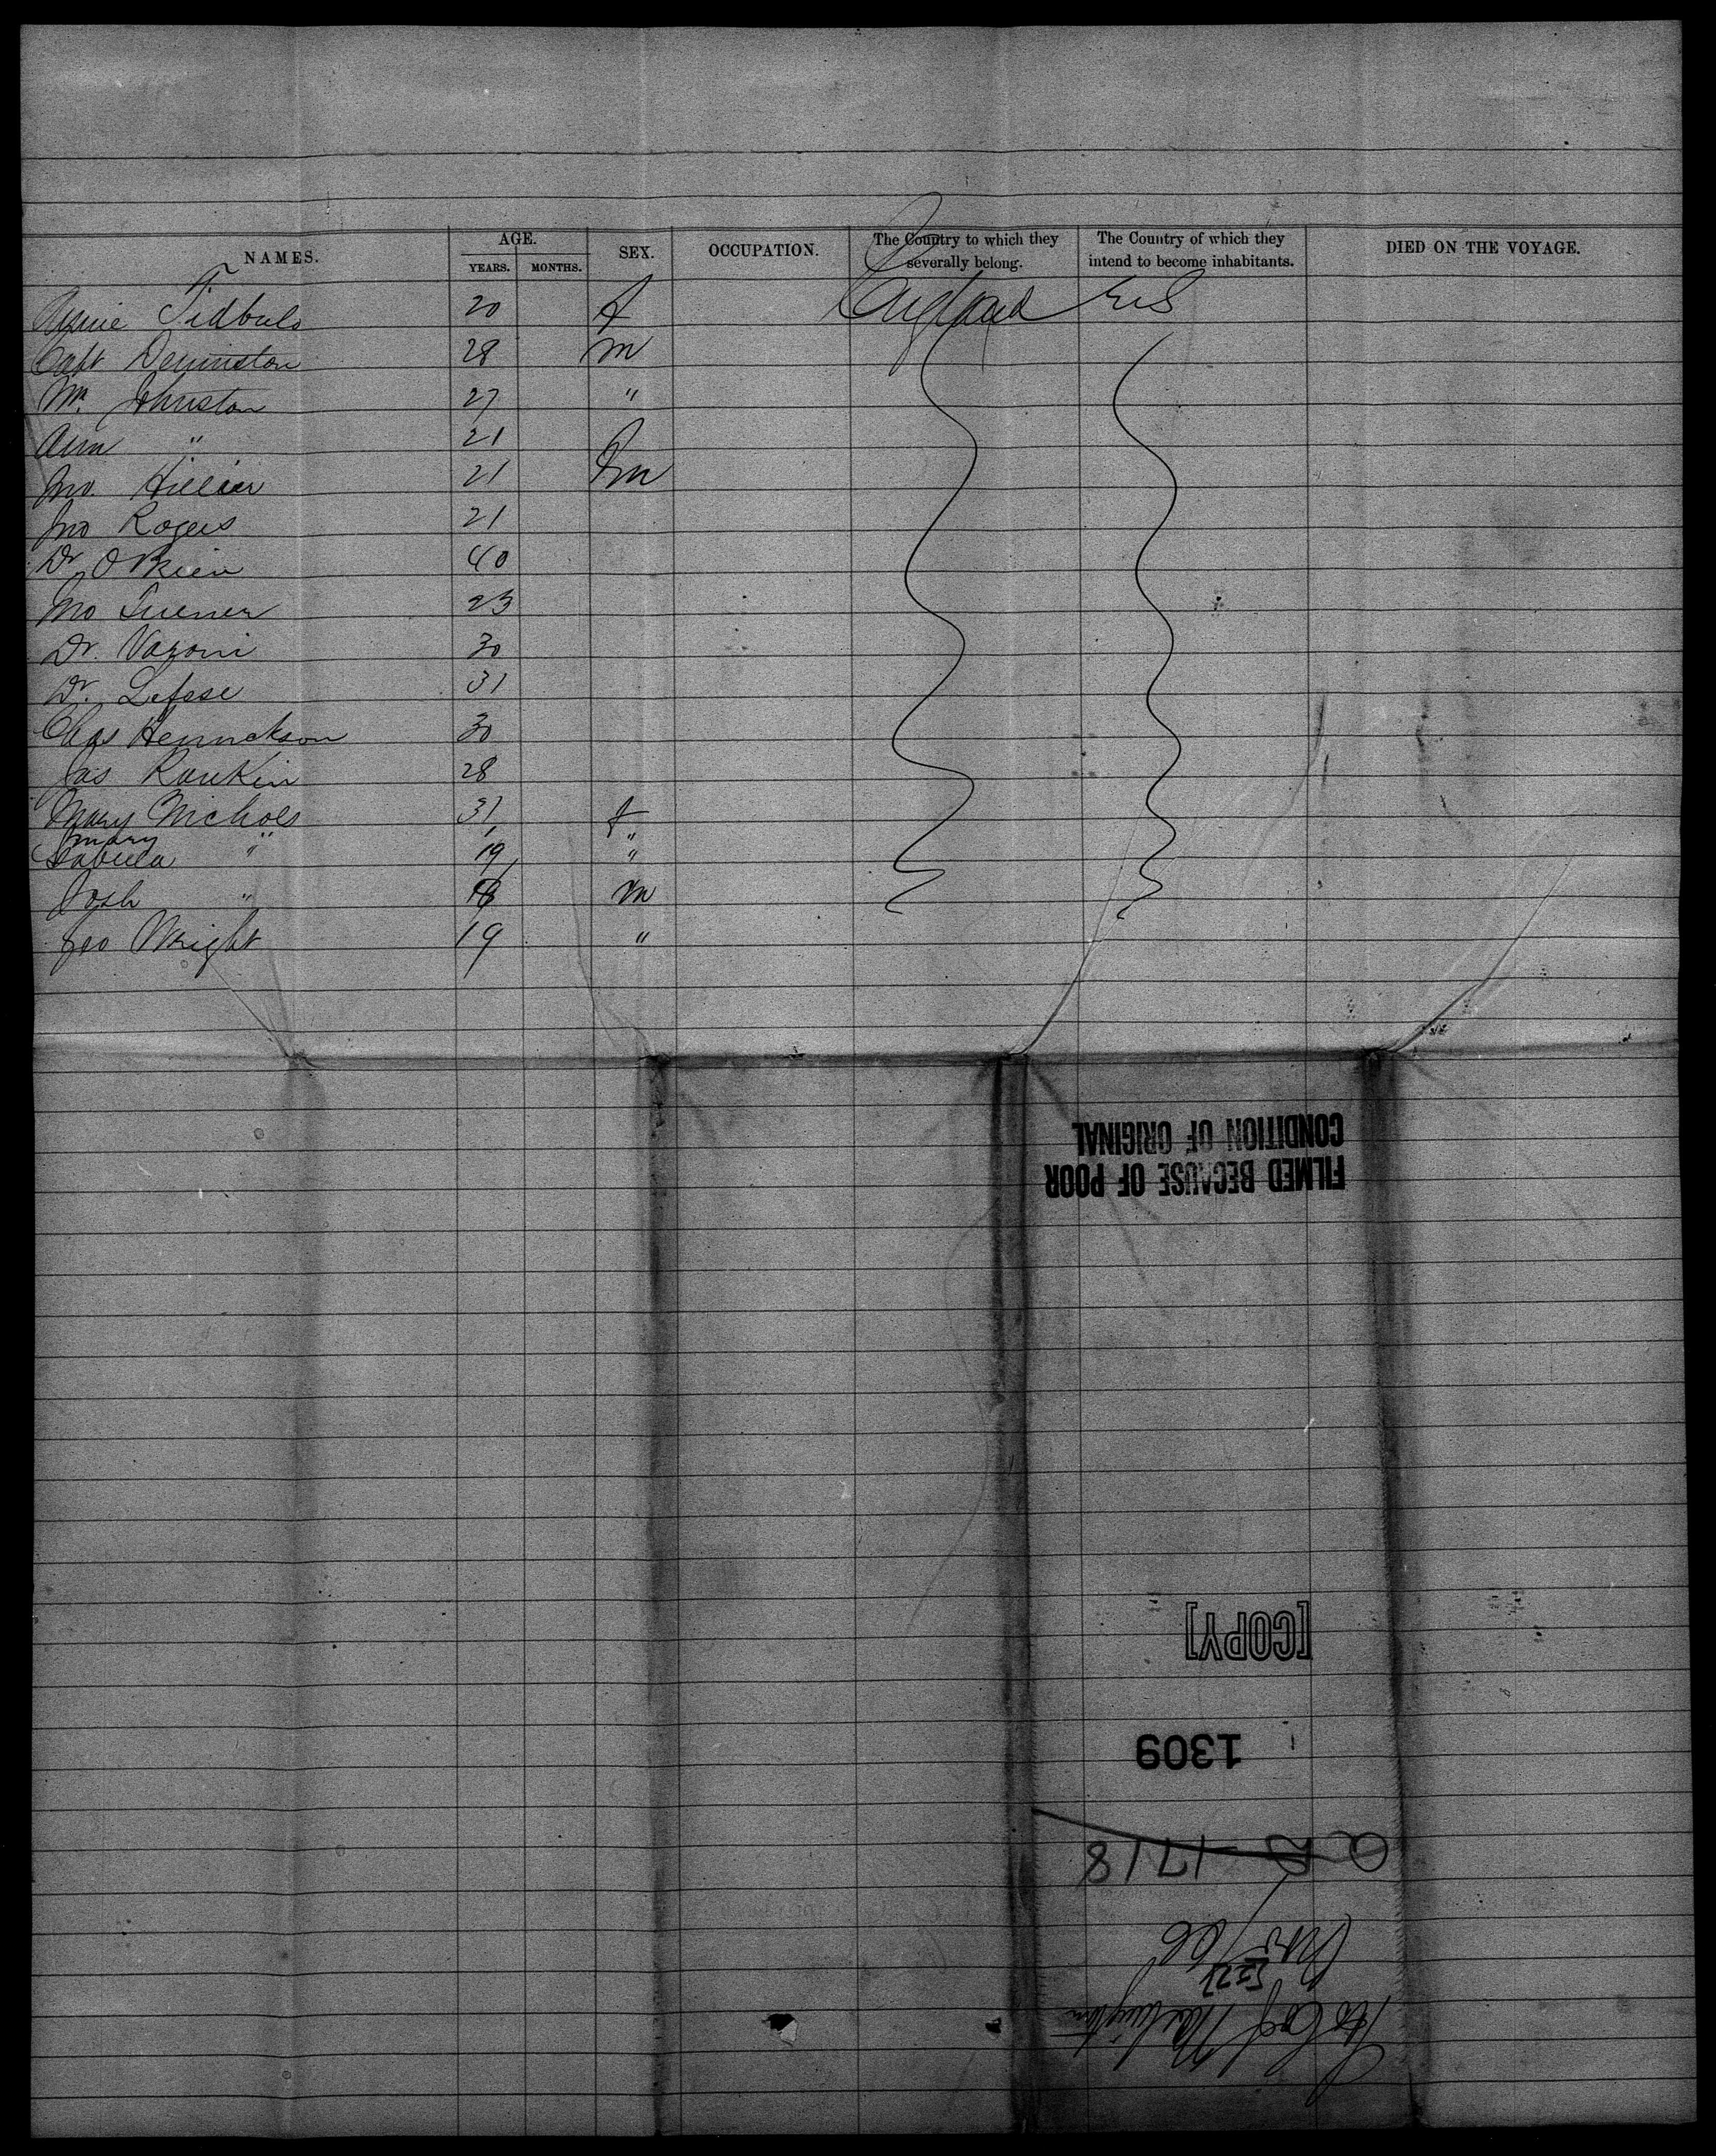 NAMES. AGE. SEX. OCCUPATION. The Country to which they severally belong. The Country of which they intend to become inhabitants. DIED ON THE VOYAGE.
YEARS. MONTHS.
T.
20 f England U S
Capt Denniston 28 m
Mr. Johnston 27 "
Ann " 21 f
Jno. Hillier 21 m
Jno Rogers 21
Dr O'Brien 40
Jno Turner 23
Dr. Vazoni 30
Dr. Lefose 31
Chas Henrickson 30
Jas Rankin 28
Mary Nichols 31 f
Mary
Isabella " 19 "
Josh " m
Geo Wright 19 "
FILMED BECAUSE OF POOR
CONDITION OF ORIGINAL
[COPY]
1309
1718
/66
[22]
City of Washington